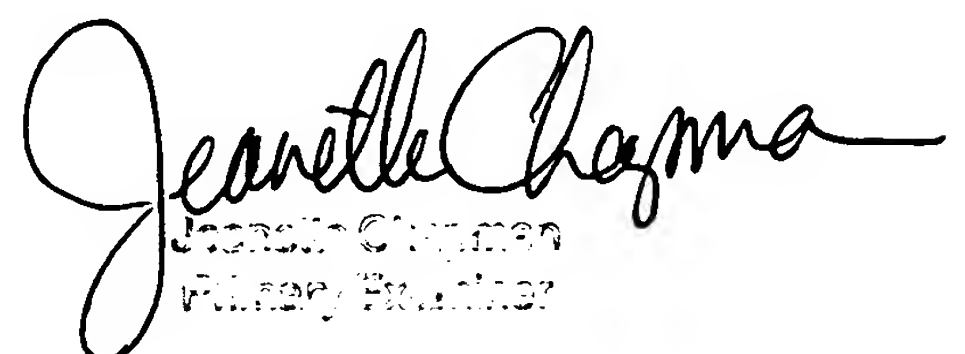 Jeanette Chapman
Jeanette Chapman
Primary Examiner